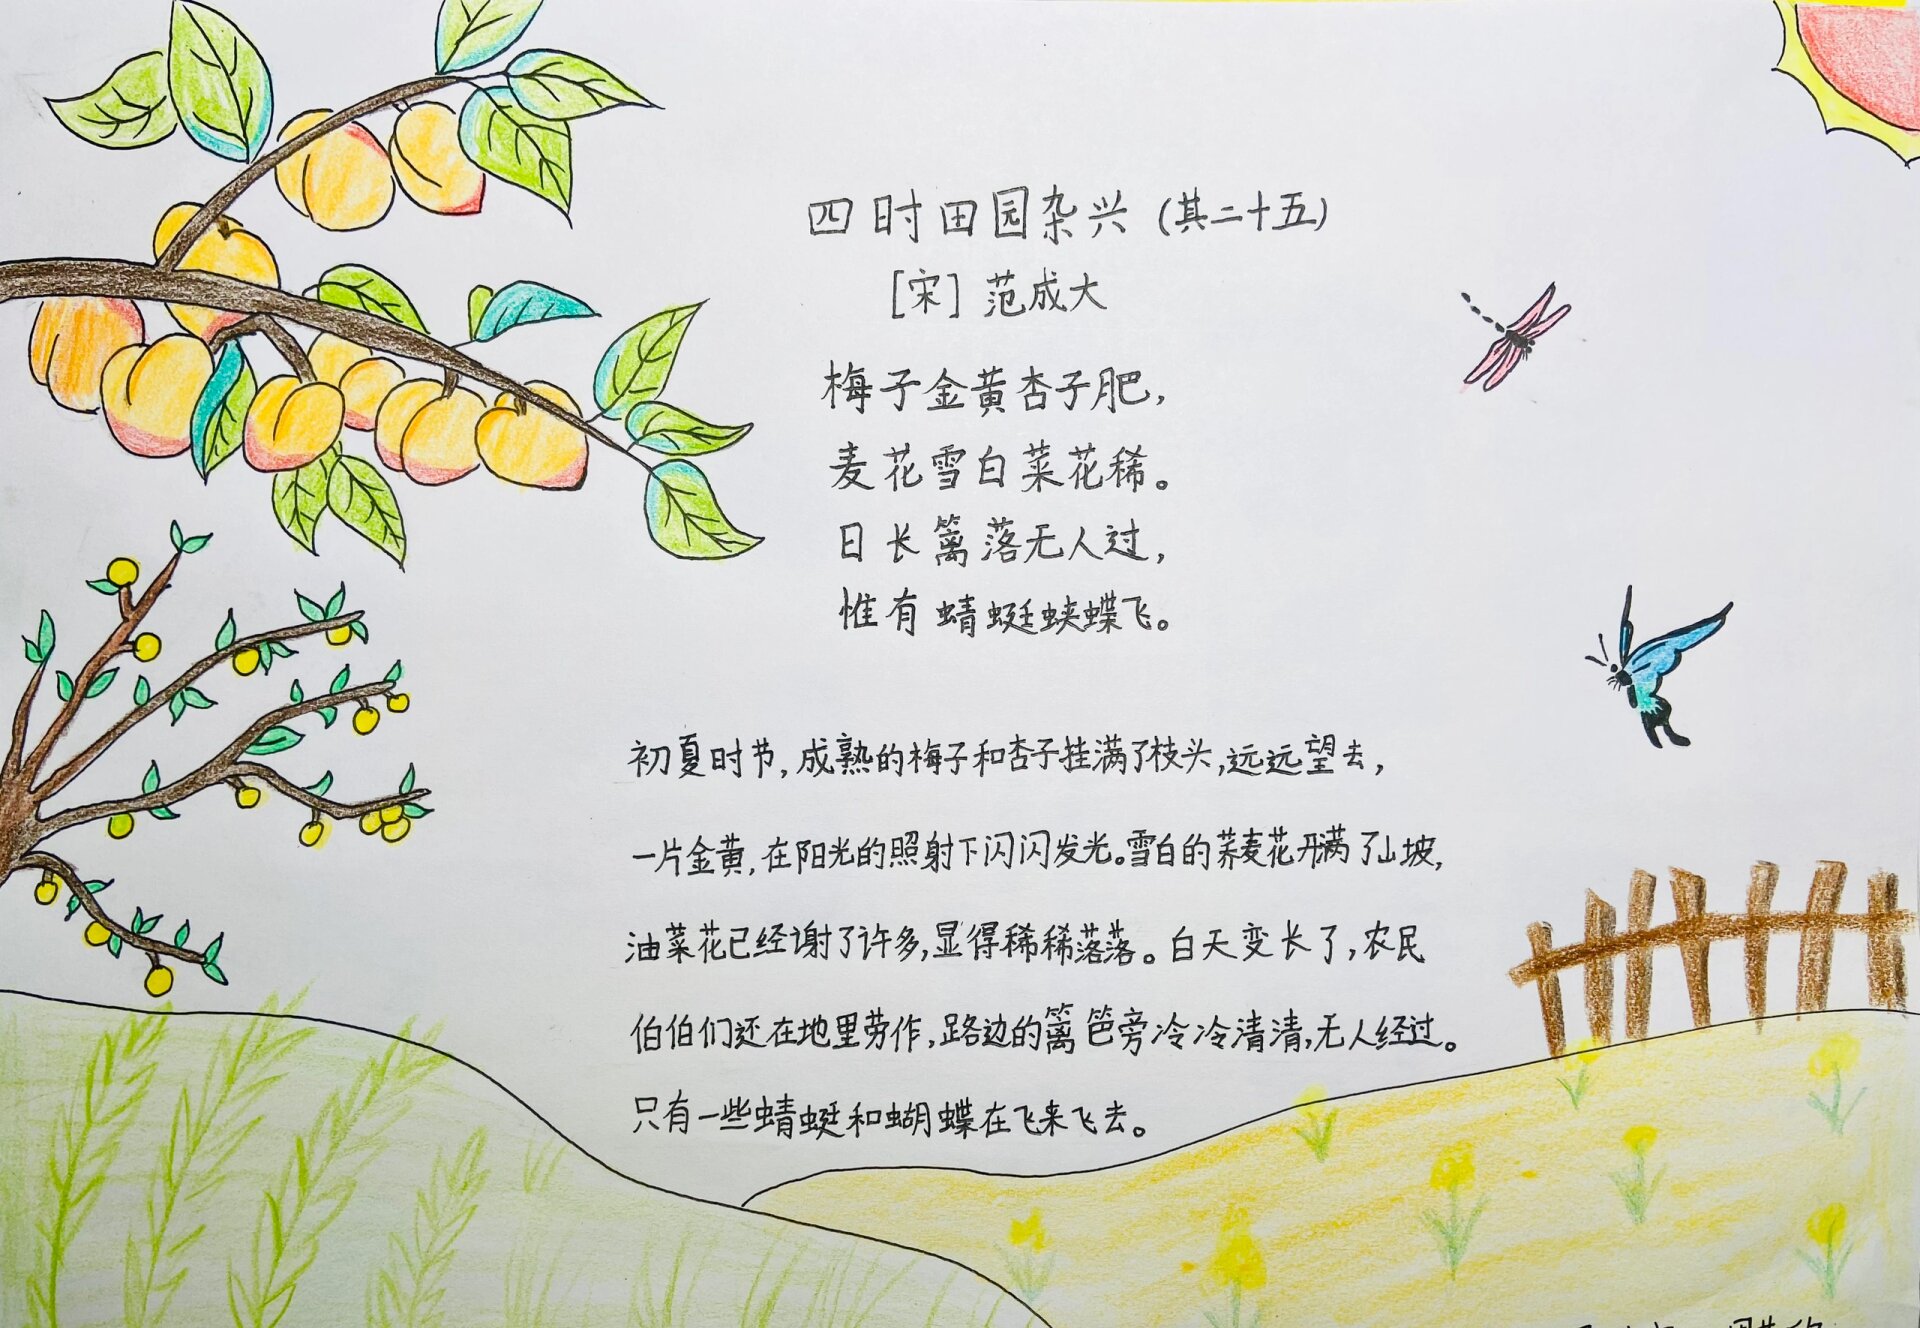 四时田园杂兴(其二十五)
[宋] 范成大
梅子金黄杏子肥，
麦花雪白菜花稀。
日长篱落无人过，
惟有蜻蜓蛱蝶飞。
初夏时节，成熟的梅子和杏子挂满了枝头，远远望去，
一片金黄，在阳光的照射下闪闪发光。雪白的荞麦花开满了山坡，
油菜花已经谢了许多，显得稀稀落落。白天变长了，农民
伯伯们还在地里劳作，路边的篱笆旁冷冷清清，无人经过。
只有一些蜻蜓和蝴蝶在飞来飞去。